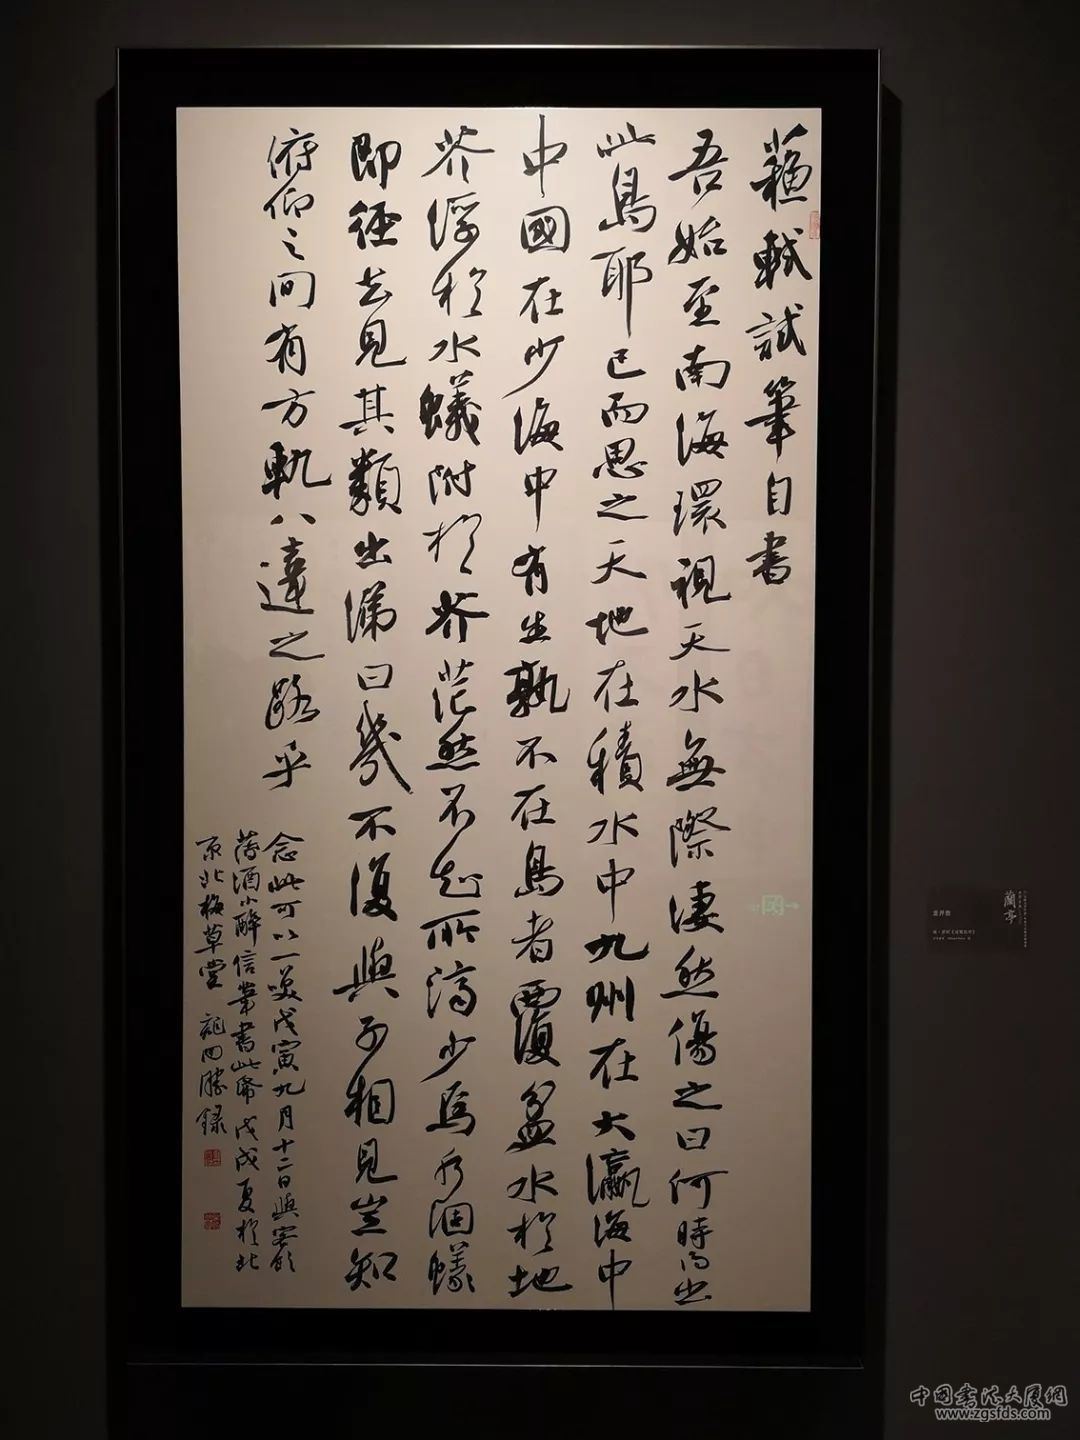 蘇軾試筆自書
吾始至南海環視天水無際淒然傷之曰何時得出
此島耶已而思之天地在積水中九州在大瀛海中
中國在少海中有生孰不在島者覆盆水於地
芥浮於水蟻附於芥茫然不知所濟少焉水涸蟻
即徑去見其類出涕曰幾不復與子相見豈知
俯仰之間有方軌八達之路乎
念此可以一笑戊寅九月十二日與客飲
薄酒小醉信筆書此紙戊戌夏於北
京北梅草堂 錄
蘭亭
中國書法大廈網
www.zgsfds.com